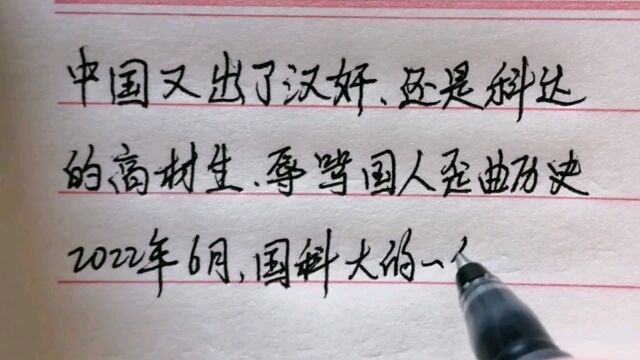 中国又出了汉奸、还是科达
的高材生、辱骂国人歪曲历史
2022年6月,国科大的一